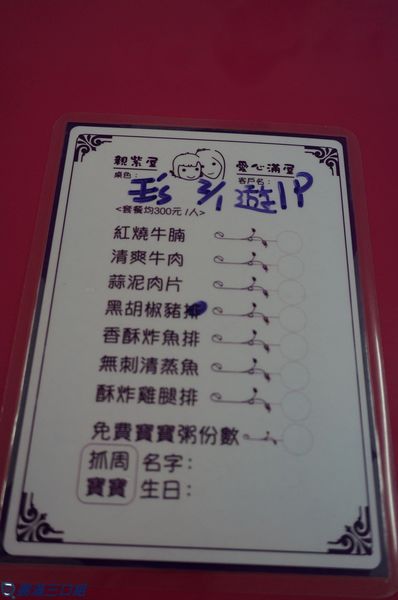 親紫屋 愛心滿屋
桌色： 客戶名：
3/1 遊1P
<套餐均300元/1人>
紅燒牛腩
清爽牛肉
蒜泥肉片
黑胡椒豬排
香酥炸魚排
無刺清蒸魚
酥炸雞腿排
免費寶寶粥份數
抓周 名字：
寶寶 生日：